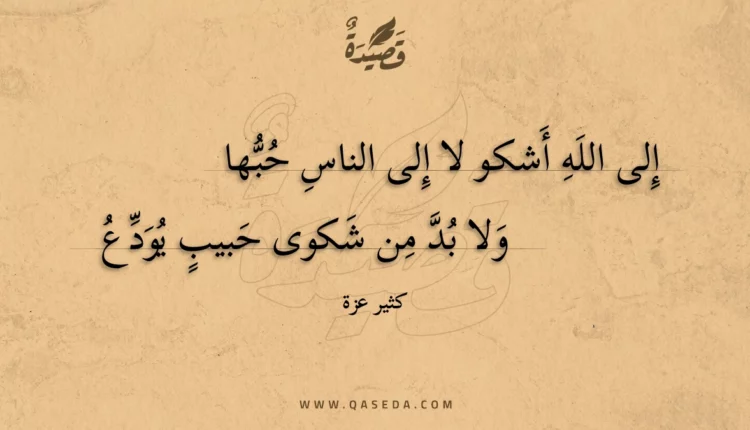 قَصِيْدَةٌ
إِلى اللَهِ أَشكو لا إِلى الناسِ حُبُّها
وَلا بُدَّ مِن شَكوى حَبيبٍ يُوَدِّعُ
كثير عزة
WWW.QASEDA.COM